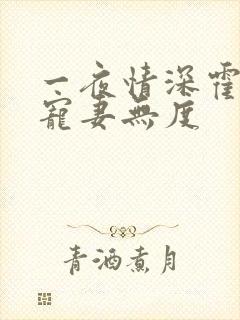 一夜情深霍
宠妻無度
青酒煮月